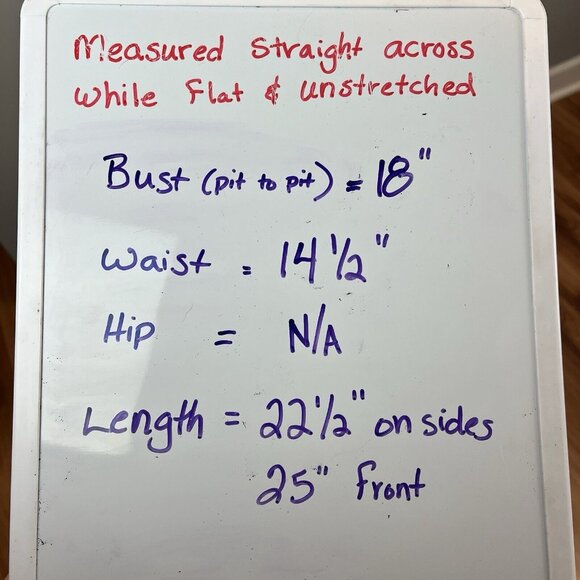 Measured straight across
while flat & unstretched
Bust (pit to pit) = 18"
Waist = 14 1/2"
Hip = N/A
Length = 22 1/2" on sides
25" Front